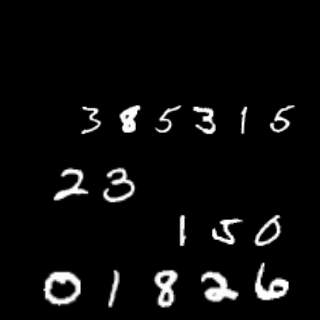 385315
23
150
01826